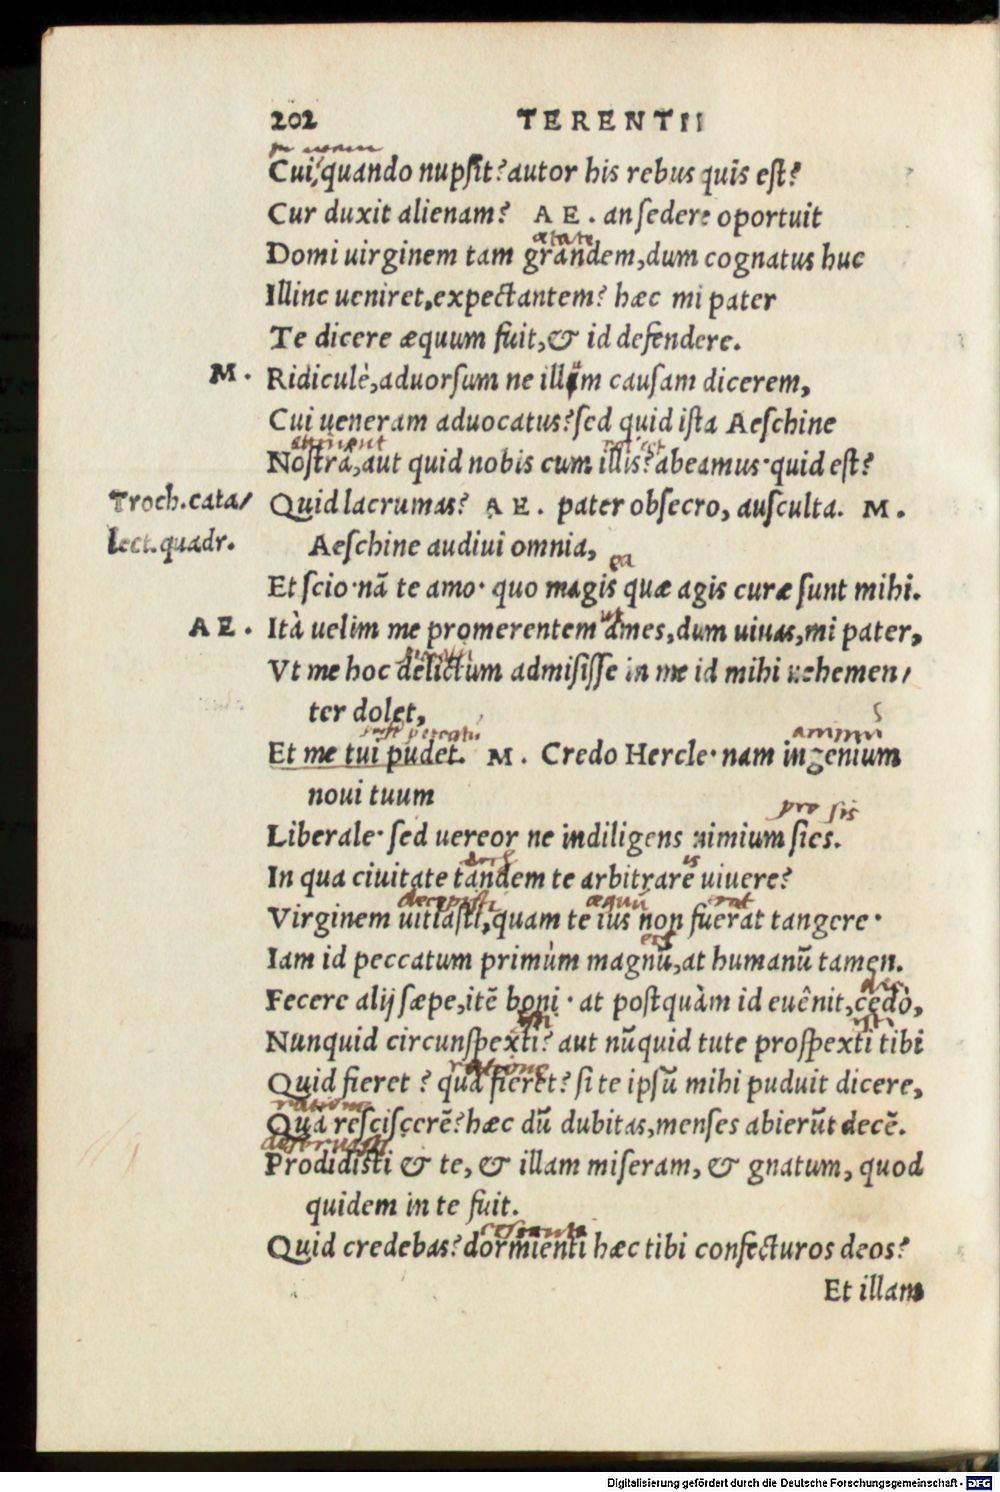 202 TERENTII
Cui, quando nupsit? autor his rebus quis est?
Cur duxit alienam? AE. an sedere oportuit
ætate
Domi uirginem tam grandem, dum cognatus huc
Illinc ueniret, expectantem? hæc mi pater
Te dicere æquum fuit, & id defendere.
M. Ridiculè, aduorsum ne illum causam dicerem,
Cui ueneram aduocatus? sed quid ista Aeschine
attinent
Nostrá, aut quid nobis cum illis? abeamus· quid est?
Troch. cata/ Quid lacrumas? AE. pater obsecro, ausculta. M.
lect. quadr. Aeschine audiui omnia,
ea
Et scio· nā te amo· quo magis quæ agis curæ sunt mihi.
ut
AE. Ità uelim me promerentem ames, dum uiuas, mi pater,
Vt me hoc delictum admisisse in me id mihi uehemen/
ter dolet,
animū
Et me tui pudet. M. Credo Hercle· nam ingenium
noui tuum
pro sis
Liberale· sed uereor ne indiligens nimium sies.
is
In qua ciuitate tandem te arbitrare uiuere?
decepisti æquū rat
Virginem uitiasti, quam te ius non fuerat tangere·
est
Iam id peccatum primùm magnū, at humanū tamen.
dic
Fecere alij sæpe, itē boni· at postquàm id euênit, cedò,
isti isti
Nunquid circunspexti? aut nūquid tute prospexti tibi
ratione
Quid fieret? qua fieret? si te ipsū mihi puduit dicere,
ratione
Qua resciscerē? hæc dū dubitas, menses abierūt decē.
Prodidisti & te, & illam miseram, & gnatum, quod
quidem in te fuit.
cessante
Quid credebas? dormienti hæc tibi confecturos deos?
Et illam
Digitalisierung gefördert durch die Deutsche Forschungsgemeinschaft - DFG